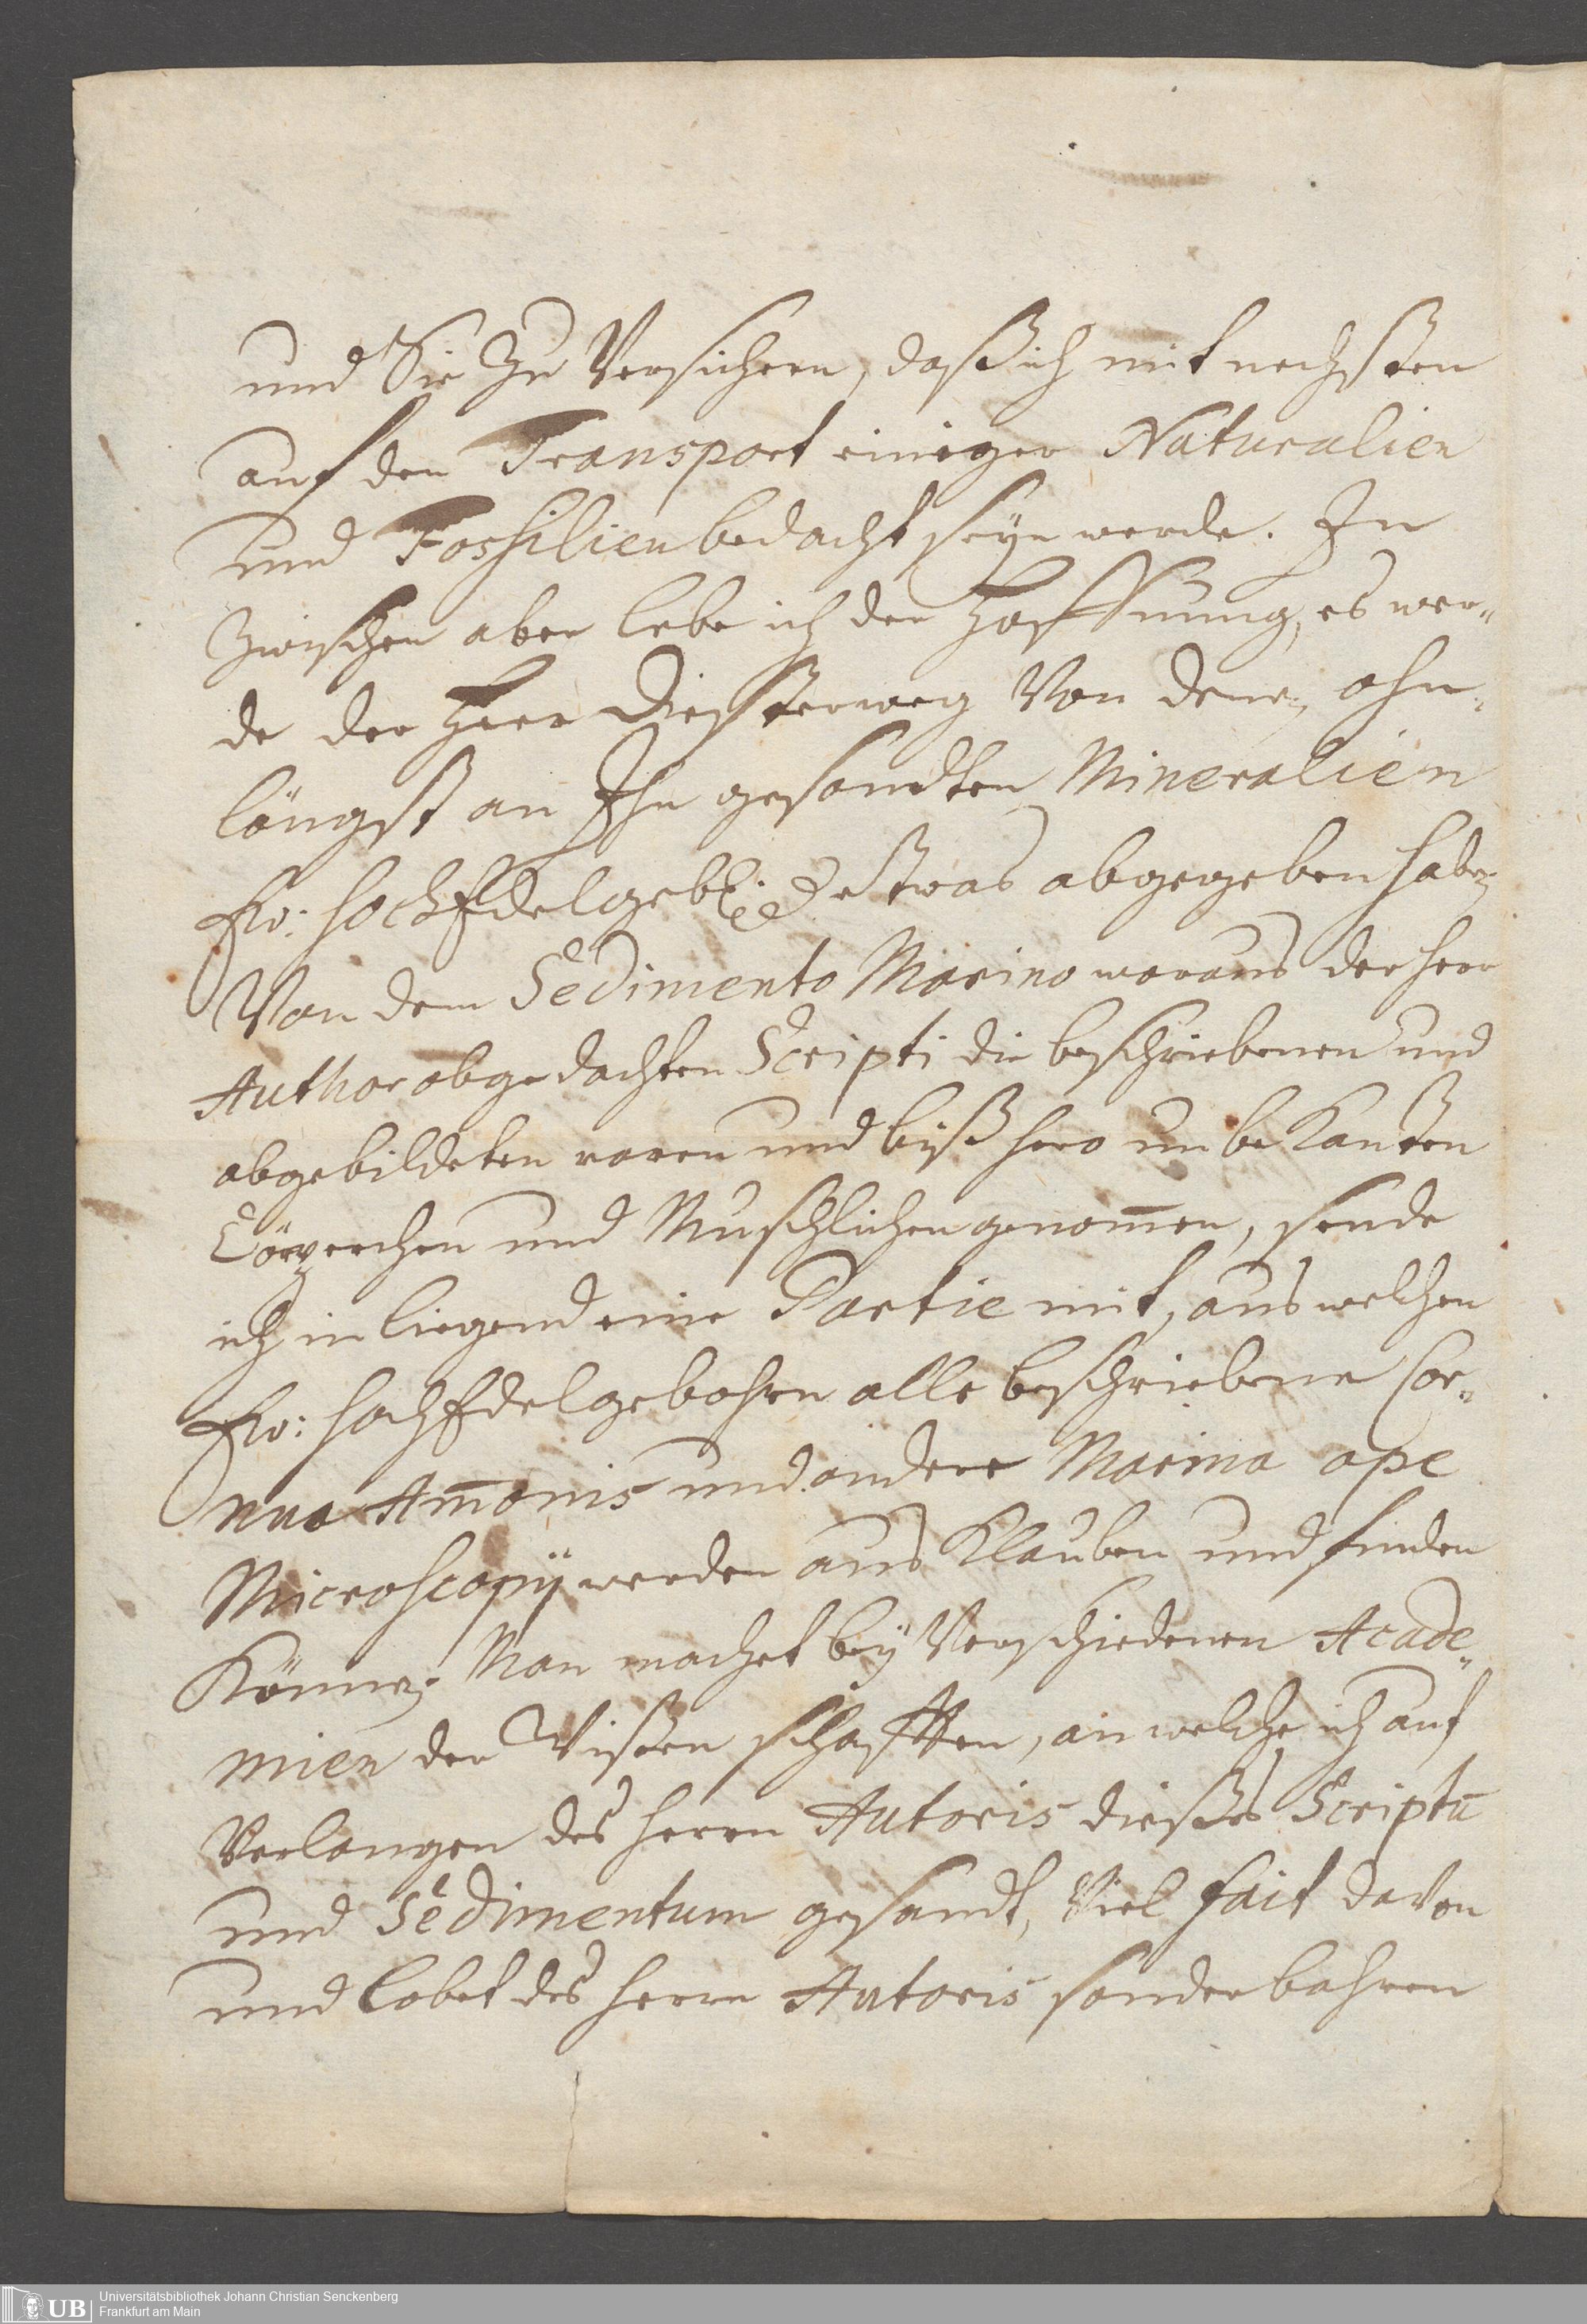 und Sie zu Versichern, daß ich mit nechsten
auf den Transport einiger Naturalien
und Fossilien bedacht seyn werde. In
zwischen aber lebe ich der Hoffnung, es wer-
de der Herr Diesterweg Von denen ohn-
längst an Ihn gesandten Mineralien
Ew: HochEdelgebl: etwas abgegeben haben
Von dem Sedimento Marino woraus der Herr
Author obgedachten Scripti die beschriebenen und
abgebildeten raren und bißhero unbekanten
Cörperchen und Muschlichen genom̄en, sende
ich inliegend eine Partie mit, aus welchen
Ew: HochEdelgebohren alle beschriebene Cor-
nua Am̄onis und andere Marina ope
Microscopij werden aus Klauben und finden
Können. Man machet bey Verschiedenen Acade-
mien der Wißenschafften, an welche ich auf
Verlangen des Herrn Autoris dießes Scriptū
und Sedimentum gesandt, Viel fait davon
und lobet des Herrn Autoris sonderbahren
Universitätsbibliothek Johann Christian Senckenberg
Frankfurt am Main
UB